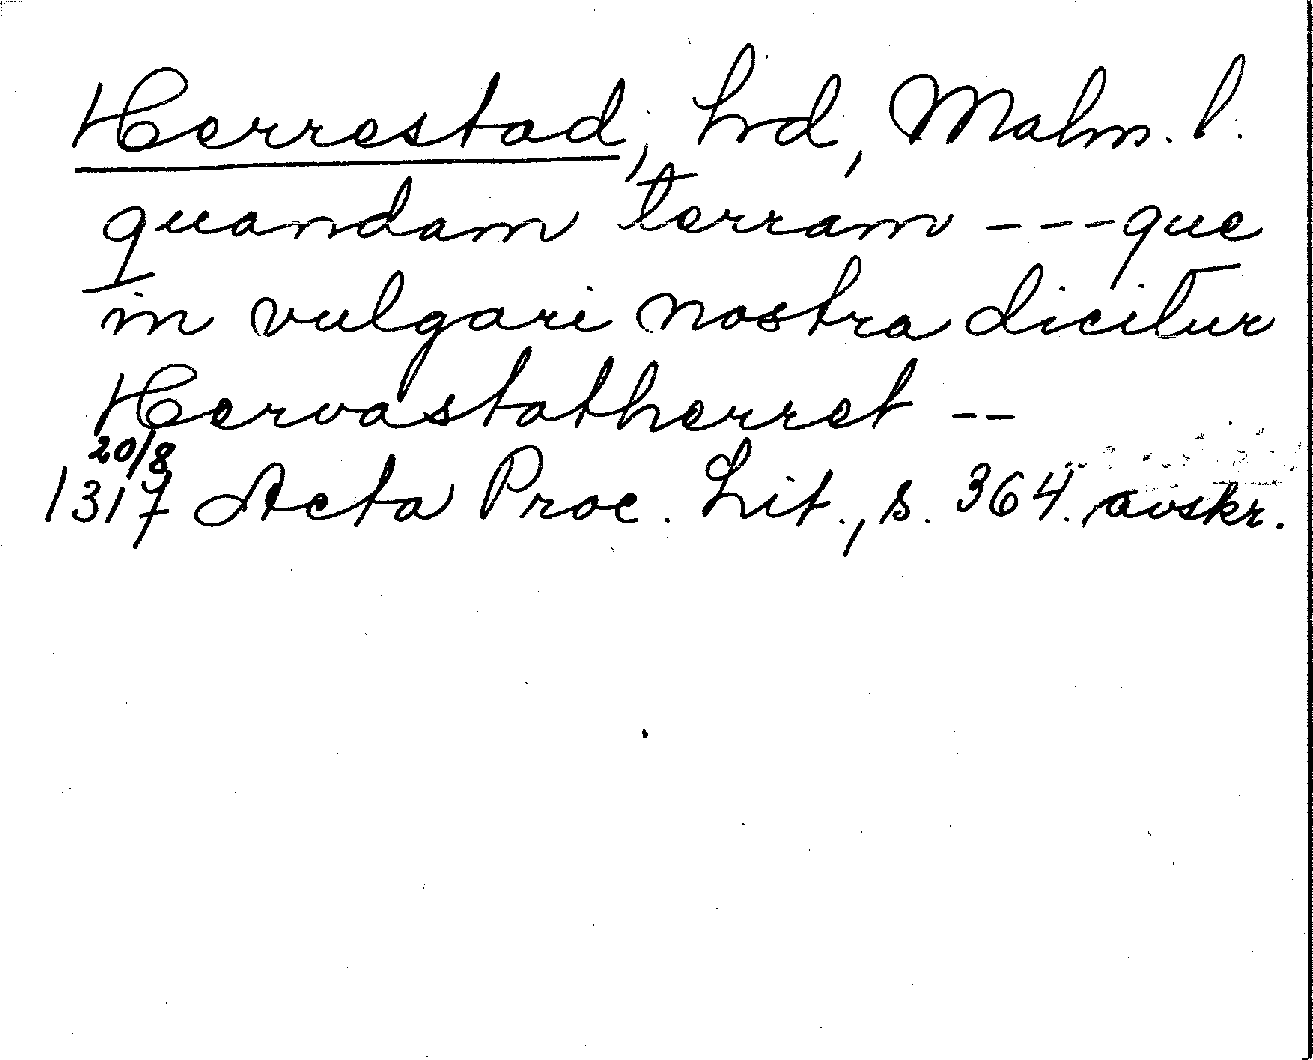 Herrestad, hd, Malm. l.
quandam terram --- que
in vulgari nostra dicitur
Hervastatherret --
20/8
1317 Acta Proc. Lit., s. 364. avskr.